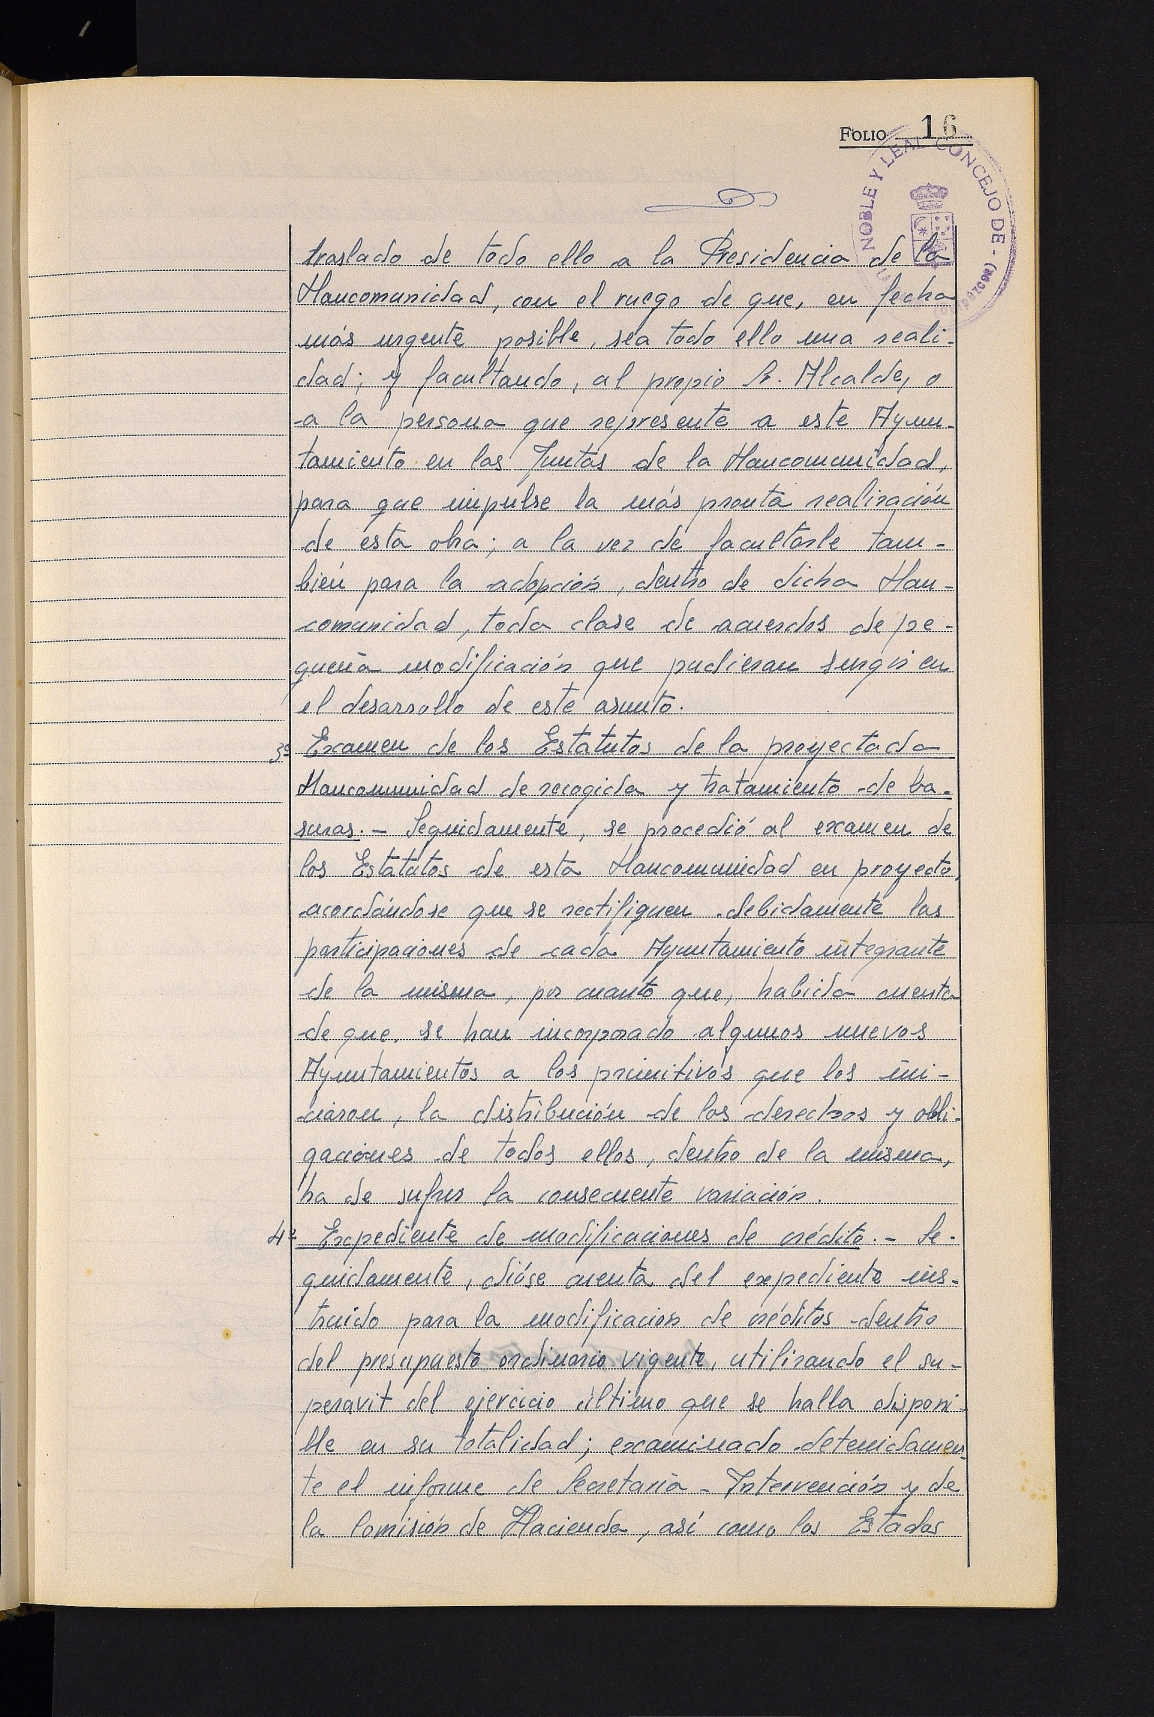 FOLIO 16
NOBLE Y LEAL CONCEJO DE
traslado de todo ello a la Presidencia de la
Mancomunidad, con el ruego de que, en fecha
más urgente posible, sea todo ello una reali-
dad; y facultando, al propio Sr. Alcalde, o
a la persona que represente a este Ayun-
tamiento en las Juntas de la Mancomunidad,
para que impulse la más pronta realización
de esta obra; a la vez de facultarle tam-
bién para la adopción, dentro de dicha Man-
comunidad, toda clase de acuerdos de pe-
queña modificación que pudieran surgir en
el desarrollo de este asunto.
3º Examen de los Estatutos de la proyectada
Mancomunidad de recogida y tratamiento de ba-
suras. - Seguidamente, se procedió al examen de
los Estatutos de esta Mancomunidad en proyecto,
acordándose que se rectifiquen debidamente las
participaciones de cada Ayuntamiento integrante
de la misma, por cuanto que, habida cuenta
de que, se han incorporado algunos nuevos
Ayuntamientos a los primitivos que los ini-
ciaron, la distribución de los derechos y obli-
gaciones de todos ellos, dentro de la misma,
ha de sufrir la consecuente variación.
4º Expediente de modificaciones de crédito. - Se-
guidamente, dióse cuenta del expediente ins-
truído para la modificación de créditos dentro
del presupuesto ordinario vigente, utilizando el su-
peravit del ejercicio último que se halla disponi-
ble en su totalidad; examinado detenidamen-
te el informe de Secretaría - Intervención y de
la Comisión de Hacienda, así como los Estados